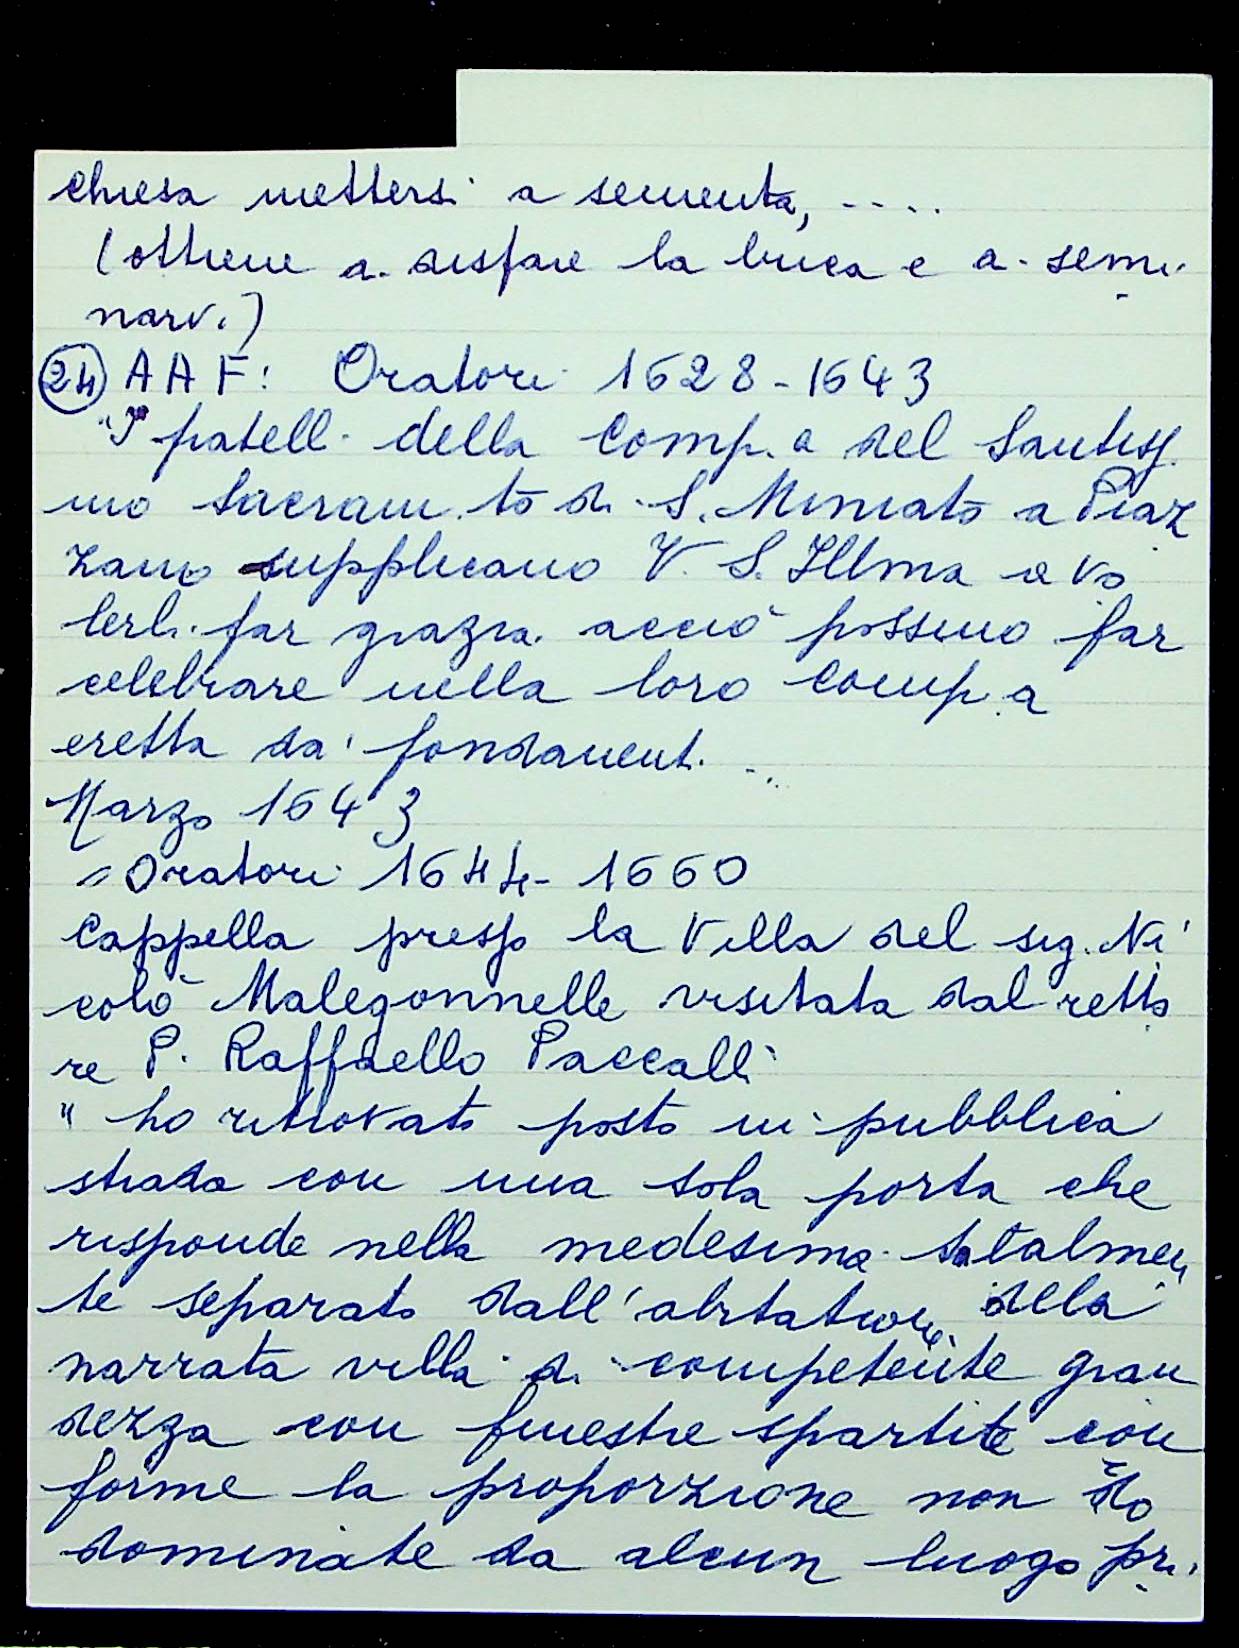 chiesa mettersi a sementa, ....
(ottiene a disfare la buca e a semi-
narvi)
24 AAF: Oratori 1628-1643
"I fratelli della Comp.a del Santiss.
mo Sacram.to di S. Miniato a Piaz
zano supplicano V. S. Ill.ma a vo
lerli far grazia acciò possino far
celebrare nella loro Comp.a
eretta da' fondamenti ...
Marzo 1643
" Oratori 1644-1660
Cappella presso la Villa del sig. Ni
colò Malegonnelle visitata dal retto
re P. Raffaello Paccalli
" ho ritrovato posto in pubblica
strada con una sola porta che
risponde nella medesima totalmen
te separato dall'abitatione della
narrata villa di competente gran
dezza con finestre spartite con
forme la proporzione non
dominate da alcun luogo pri-